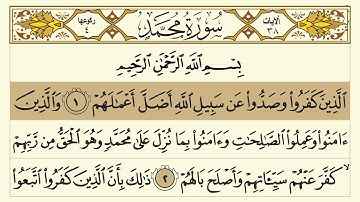 الآيات ٣٨ سُورَةُ مُحَمَّد ركوعها ٤
بِسْمِ ٱللَّهِ ٱلرَّحْمَٰنِ ٱلرَّحِيمِ
ٱلَّذِينَ كَفَرُوا۟ وَصَدُّوا۟ عَن سَبِيلِ ٱللَّهِ أَضَلَّ أَعْمَٰلَهُمْ ١ وَٱلَّذِينَ
ءَامَنُوا۟ وَعَمِلُوا۟ ٱلصَّٰلِحَٰتِ وَءَامَنُوا۟ بِمَا نُزِّلَ عَلَىٰ مُحَمَّدٍ وَهُوَ ٱلْحَقُّ مِن رَّبِّهِمْ
كَفَّرَ عَنْهُمْ سَيِّـَٔاتِهِمْ وَأَصْلَحَ بَالَهُمْ ٢ ذَٰلِكَ بِأَنَّ ٱلَّذِينَ كَفَرُوا۟ ٱتَّبَعُوا۟